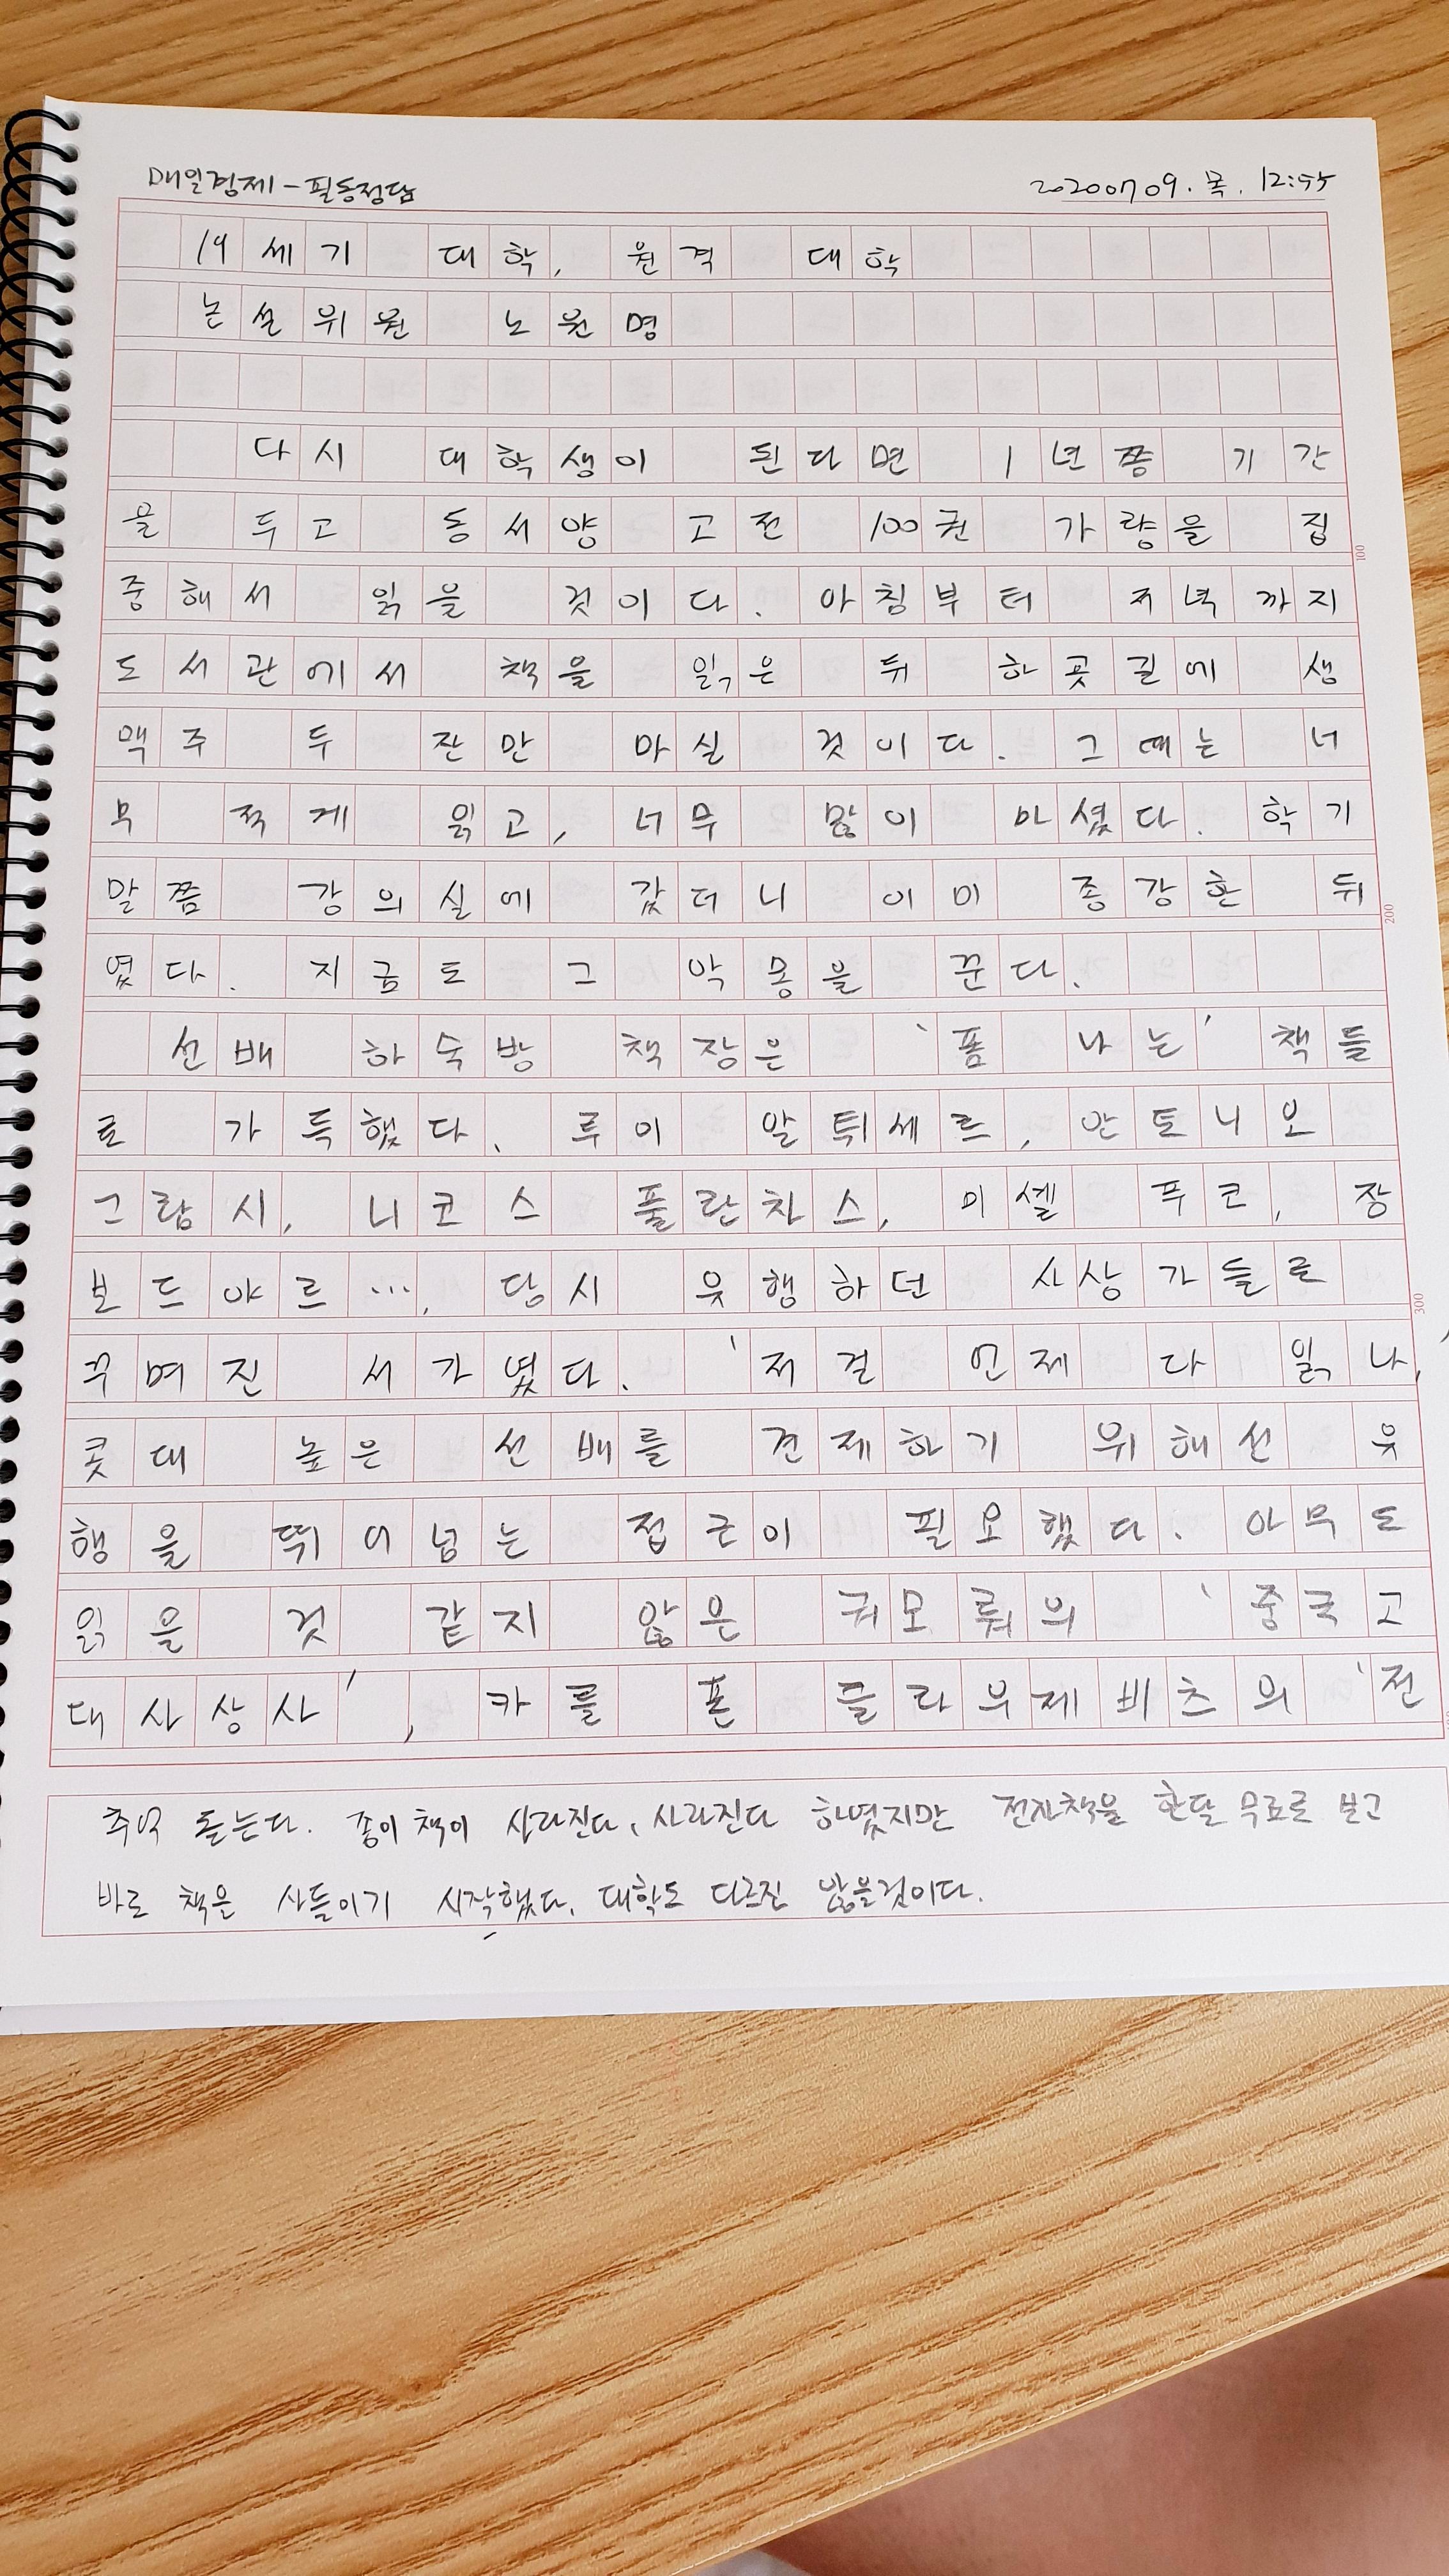 매일경제 - 필동정담
20200709. 목. 12:55
19세기 대학, 원격 대학
논설위원 노원명
다시 대학생이 된다면 1년쯤 기간
을 두고 동서양 고전 100권 가량을 집
중해서 읽을 것이다. 아침부터 저녁까지
도서관에서 책을 읽은 뒤 하굣길에 생
맥주 두 잔만 마실 것이다. 그때는 너
무 적게 읽고, 너무 많이 마셨다. 학기
말쯤 강의실에 갔더니 이미 종강한 뒤
였다. 지금도 그 악몽을 꾼다.
선배 하숙방 책장은 '폼 나는' 책들
로 가득했다. 루이 알튀세르, 안토니오
그람시, 니코스 풀란차스, 미셸 푸코, 장
보드야르…, 당시 유행하던 사상가들로
꾸며진 서가였다. '저걸 언제 다 읽나,'
콧대 높은 선배를 견제하기 위해선 유
행을 뛰어넘는 접근이 필요했다. 아무도
읽을 것 같지 않은 궈모뤄의 '중국고
대사상사', 카를 폰 클라우제비츠의 '전
추억 돋는다. 종이책이 사라진다, 사라진다 하였지만 전자책을 한달 무료로 보고
바로 책은 사들이기 시작했다. 대학도 다르진 않을것이다.